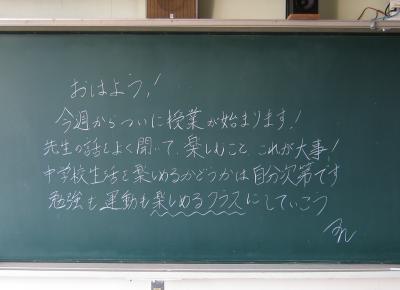 おはよう!
今週からついに授業が始まります!
先生の話をよく聞いて、楽しむこと、これが大事!
中学校生活を楽しめるかどうかは自分次第です
勉強も運動も楽しめるクラスにしていこう